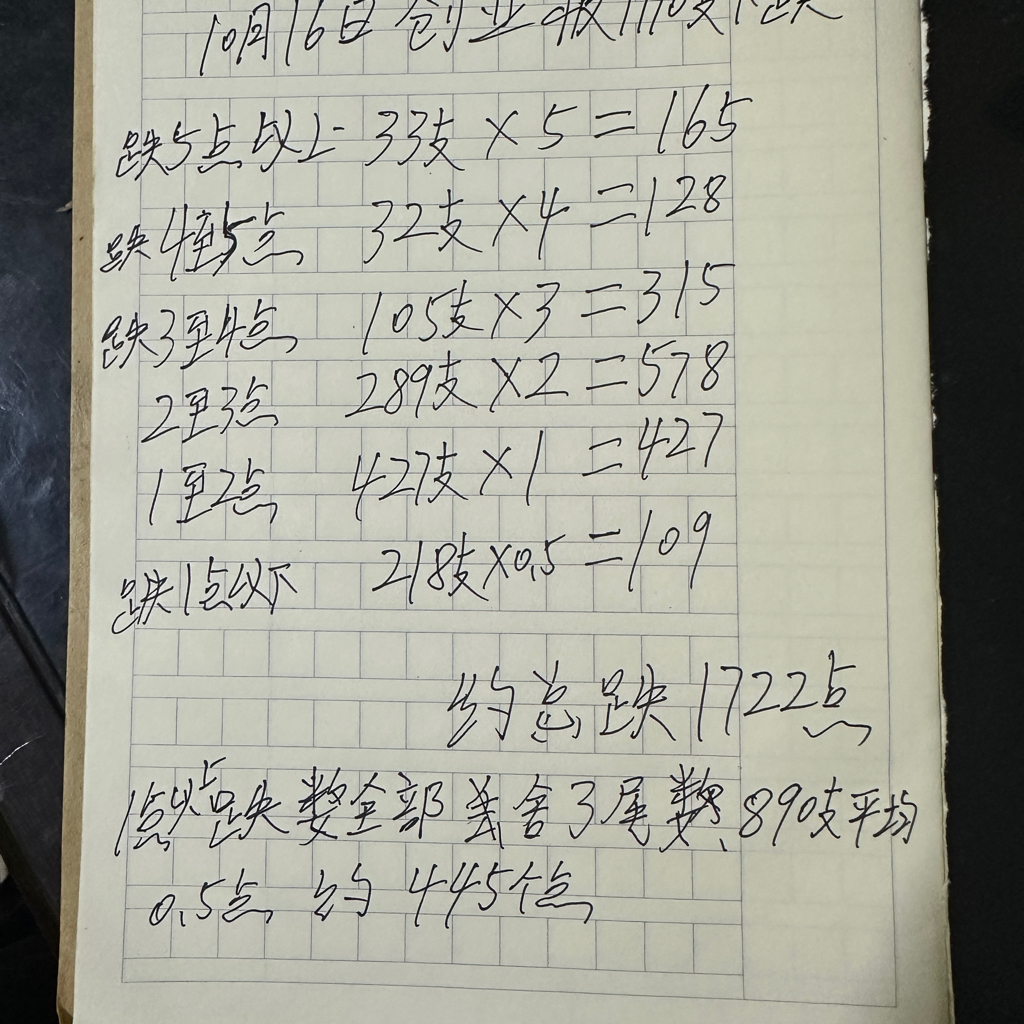 10月16日创业板1110支下跌
跌5点以上 33支×5=165
跌4至5点 32支×4=128
跌3至4点 105支×3=315
2至3点 289支×2=578
1至2点 427支×1=427
跌1点以下 218支×0.5=109
约总跌1722点
1点以上跌数全部舍了尾数、890支平均
0.5点 约445个点